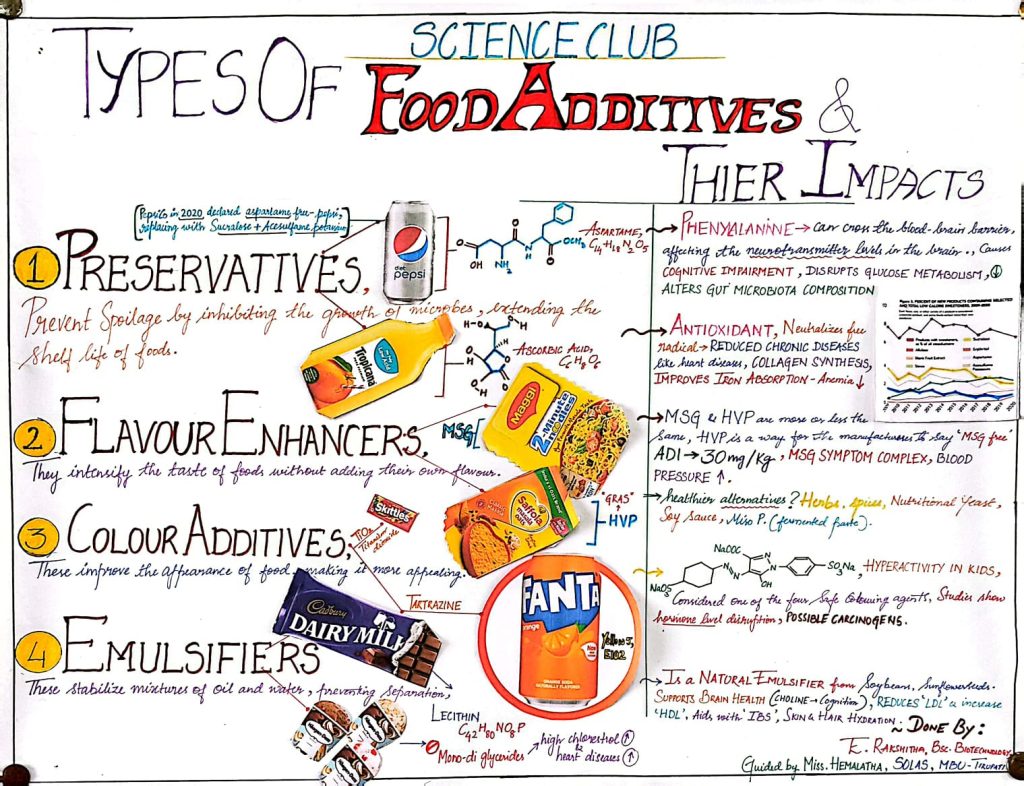 SCIENCE CLUB
TYPES OF FOOD ADDITIVES &
THIER IMPACTS
[PepsiCo in 2020 declared aspartame free-pepsi,
replacing with Sucralose + Acesulfame potassium]
diet
pepsi
OH
NH2
NH
OCH3
ASPARTAME,
C14H18N2O5
1 PRESERVATIVES,
Prevent Spoilage by inhibiting the growth of microbes, extending the
shelf life of foods.
Tropicana
ASCORBIC ACID,
C6H8O6
PHENYLALANINE → can cross the blood-brain barrier,
affecting the neurotransmitter levels in the brain., Causes
COGNITIVE IMPAIRMENT, DISRUPTS GLUCOSE METABOLISM, ↓
ALTERS GUT MICROBIOTA COMPOSITION
ANTIOXIDANT, Neutralizes free
radical → REDUCED CHRONIC DISEASES
like heart diseases, COLLAGEN SYNTHESIS,
IMPROVES IRON ABSORPTION - Anemia ↓
2 FLAVOUR ENHANCERS,
They intensify the taste of foods without adding their own flavour.
MSG[
Maggi
2-Minute
noodles
Saffola
masala
oats
"GRAS"
HVP
MSG & HVP are more or less the
same, HVP is a way for the manufacturers to say 'MSG free'
ADI → 30 mg/kg, MSG SYMPTOM COMPLEX, BLOOD
PRESSURE ↑.
healthier alternatives? Herbs, spices, Nutritional Yeast,
Soy sauce, Miso P. (fermented paste).
3 COLOUR ADDITIVES,
These improve the appearance of food, making it more appealing.
Skittles
TiO2
Titanium
dioxide
TARTRAZINE
FANTA
orange
ORANGE SODA
NATURALLY FLAVORED
Yellow 5,
E102
NaOOC
OH
SO3Na
HYPERACTIVITY IN KIDS,
Considered one of the four safe Colouring agents, Studies show
hormone level disruption, POSSIBLE CARCINOGENS.
4 EMULSIFIERS
These stabilize mixtures of oil and water, preventing separation,
Cadbury
DAIRY MILK
LECITHIN
C42H80NO8P
Mono-di glycerides → high cholestrol ↑
&
heart diseases ↑
Is a NATURAL EMULSIFIER from Soybean, Sunflowerseeds.
SUPPORTS BRAIN HEALTH (CHOLINE → Cognition), REDUCES 'LDL' & increase
'HDL', Aids with 'IBS', SKIN & HAIR HYDRATION.
~ DONE BY:
E. RAKSHITHA, BSC. BIOTECHNOLOGY
Guided by MISS. HEMALATHA, SOLAS, MBU-TIRUPATI